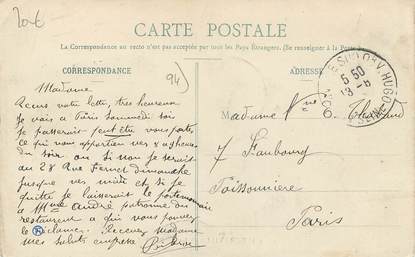 20€
CARTE POSTALE
La Correspondance au recto n'est pas acceptée par tous les Pays Étrangers. (Se renseigner à la Poste)
CORRESPONDANCE
ADRESSE
94
5 50
13 - 6
V. HUGO
SEINE
Madame
Recus votre lettre, tres heureux
Je vais a Paris samedi soir
Je passerait peut être vous porter
ce qui vous appartien vers 8 a 9 heures
du soir ou si non je serait
au 28 Rue dimanche
jusque vers midi et si je
quitte je laisserait le portemonaie
a Mme André patronne du
restaurant a qui vous pouvez
le Réclamer. Recevez Madame
mes saluts empresse
Madame Vve
7 Faubourg
Poissonnière
Paris